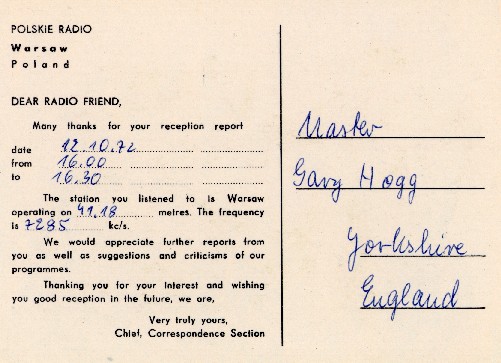 POLSKIE RADIO
Warsaw
Poland
DEAR RADIO FRIEND,
Many thanks for your reception report
date 12.10.72
from 16.00
to 16.30
The station you listened to is Warsaw
operating on 41.18 metres. The frequency
is 7285 kc/s.
We would appreciate further reports from
you as well as suggestions and criticisms of our
programmes.
Thanking you for your interest and wishing
you good reception in the future, we are,
Very truly yours,
Chief, Correspondence Section
Master
Gary Hogg
Yorkshire
England